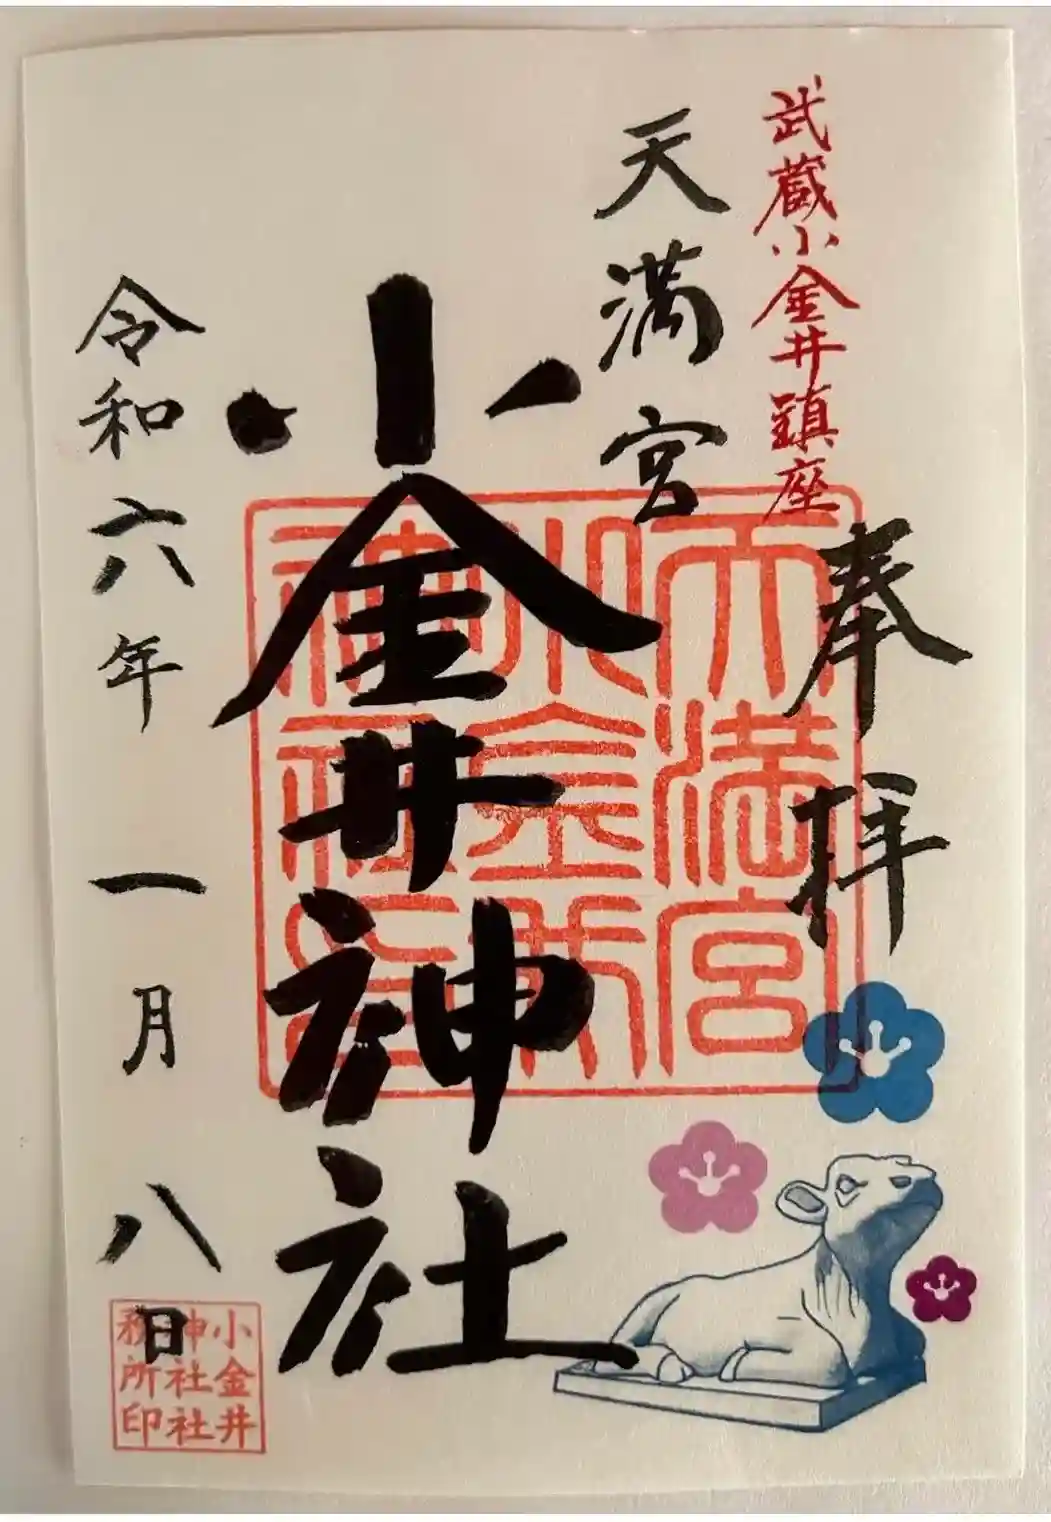 武蔵小金井鎮座
奉拝
天満宮
小金井神社
天満宮
小金井
神社印
令和六年一月八日
小金井
神社社
務所印